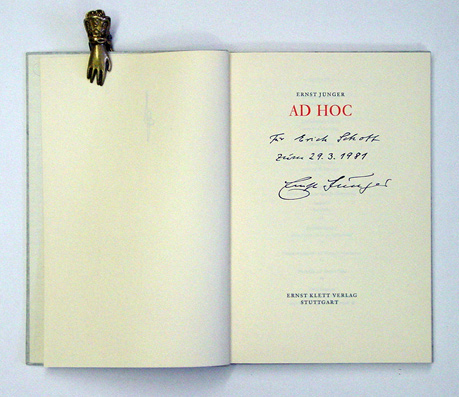 ERNST JÜNGER
AD HOC
Für Erich Schott
zum 29. 3. 1981
Ernst Jünger
ERNST KLETT VERLAG
STUTTGART